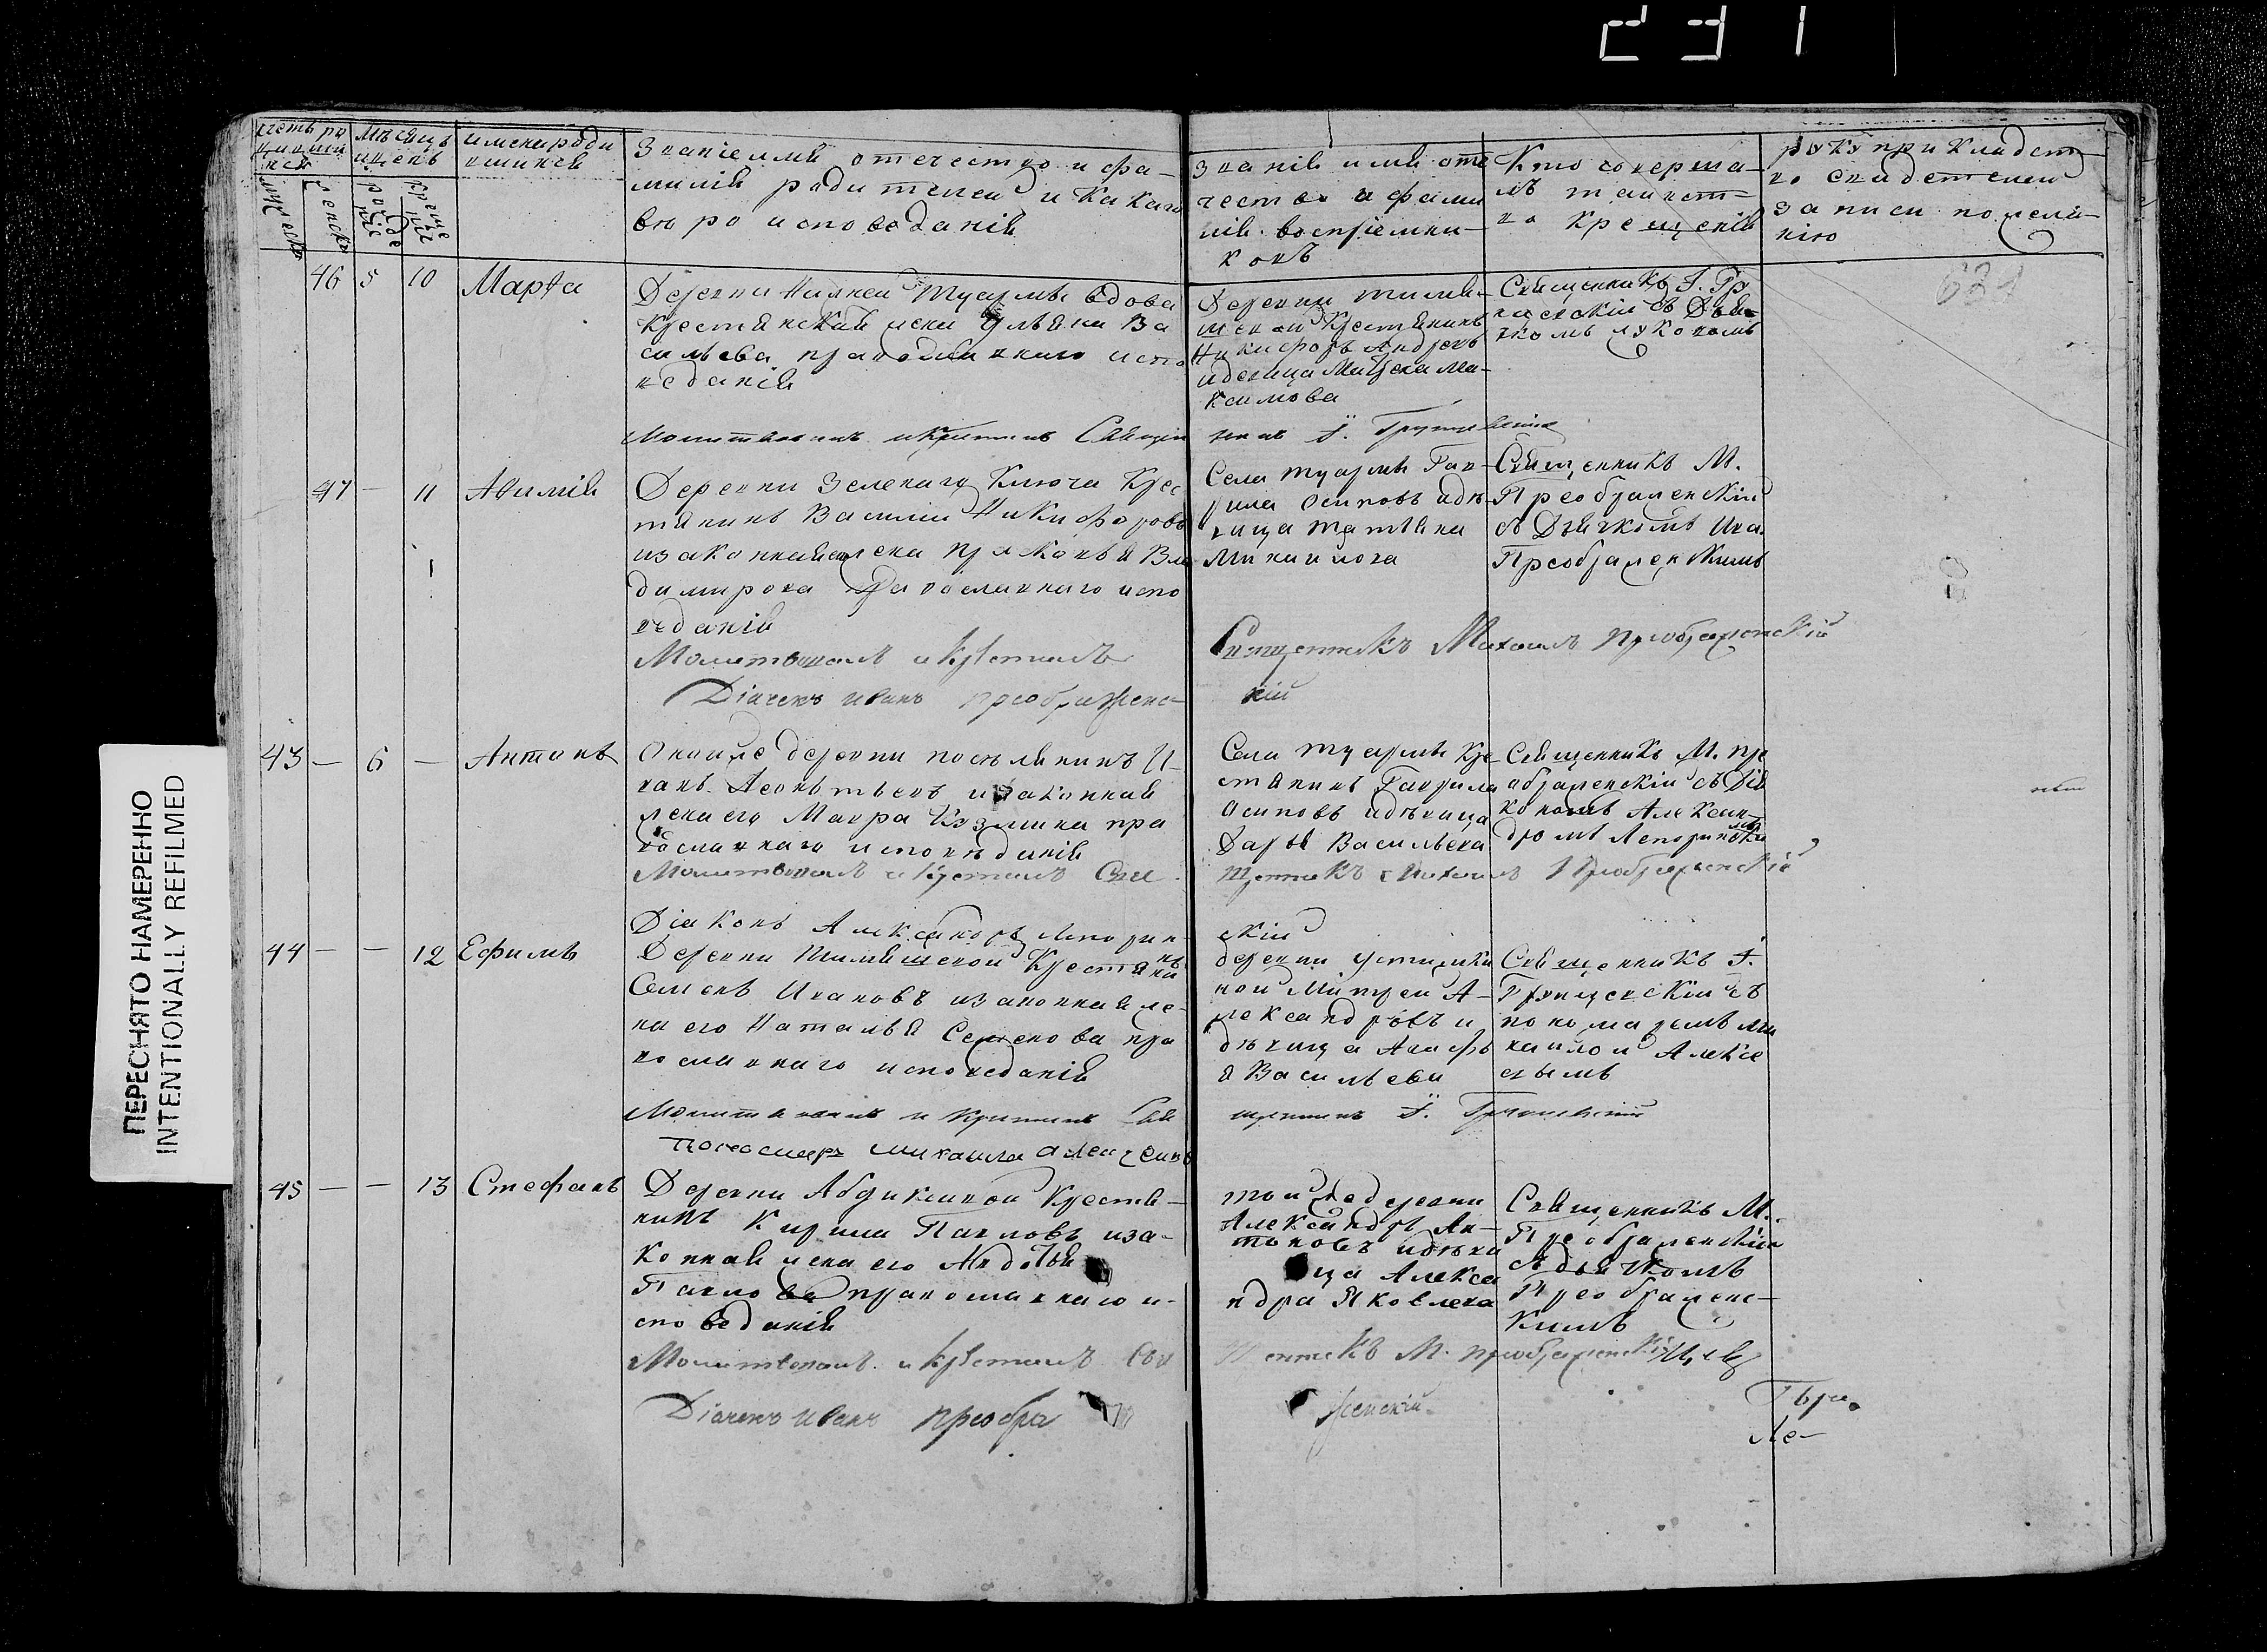 231
счетъ ро
дивши
хся
мужеска
женска
мѣсяцъ
и день
рожде
креще
имена роди
вшихся
Званіе имя отечество и фа-
милія родителей и какаго
вѣро исповеданія
Званія имя оте
чество и фами
лія воспріемни-
ковъ
Кто соверша-
лъ таинст-
во крещенія
рукуприкладст
во свидетелей
записи по жела-
нію
681
46 5 10 Марѳа
Деревни Нижней Туармы вдова
крестьянская жена Ульяна Ва
сильева православнаго испо
веданія
Деревни
крестьянинъ
Никифоръ Андреевъ
и девица Матрена Ма-
ксимова
Священникъ І.
съ Дья-
чкомъ
Молитвовалъ и крестилъ Священ
никъ І.
47 — 11 Авимія
Деревни Зеленаго Ключа Крес
тьянинъ Василій Никифоровъ
и законная жена Прасковья Вла
димирова Православнаго испо
веданія
Села Туармы Гав-
рила Осиповъ и дѣ-
вица Татьяна
Священникъ М.
Преображенскій
съ Дьячкомъ Ива.
Преображенскимъ
Молитвовалъ и крестилъ
Священникъ Михаилъ Преображенскій
Діачекъ Иванъ Преображенс-
кій
43 — 6 — Антонъ
Оной же деревни поселянинъ И-
ванъ Леонтьевъ и законная
жена его Мавра Кузмина пра
вославнаго исповѣданія
Села Туармы Кре-
стьянинъ Гаврила
Осиповъ и дѣвица
Дарья Васильева
Священникъ М. Пре
ображенскій съ Діа
кономъ Алексан-
дромъ
Молитвовалъ и крестилъ Свя
щенникъ Михаилъ Преображенскій
Діаконъ Александръ
скій
44 — — 12 Ефимъ
Деревни Крестьяни
нъ
Семенъ Ивановъ и законная же-
на его Наталья Семенова пра
вославнаго исповеданія
деревни
ной Митрей А-
лександровъ и
дѣвица Агафь
я Васильева
Священникъ І.
съ
пономаремъ Ми
хаиломъ Алексе
евымъ
Молитвовалъ и крестилъ Свя
щенникъ І.
Пономарь Михаила Алексеевъ
45 — — 13 Стефанъ
Деревни Абдикиевой Крестья-
нинъ Кирила Павловъ и за-
конная жена его Авдотья
Павлова православнаго и-
споведанія
той же деревни
Александръ Ан-
тоновъ и дѣви
ца Алекса
ндра Яковлева
Священникъ М.
Преображенскій
съ дьячкомъ
Преображенс-
кимъ
Молитвовалъ и крестилъ Свя
щенникъ М. Преображенскій
Діачекъ Иванъ Преобра
женскій
ПЕРЕСНЯТО НАМЕРЕННО
INTENTIONALLY REFILMED